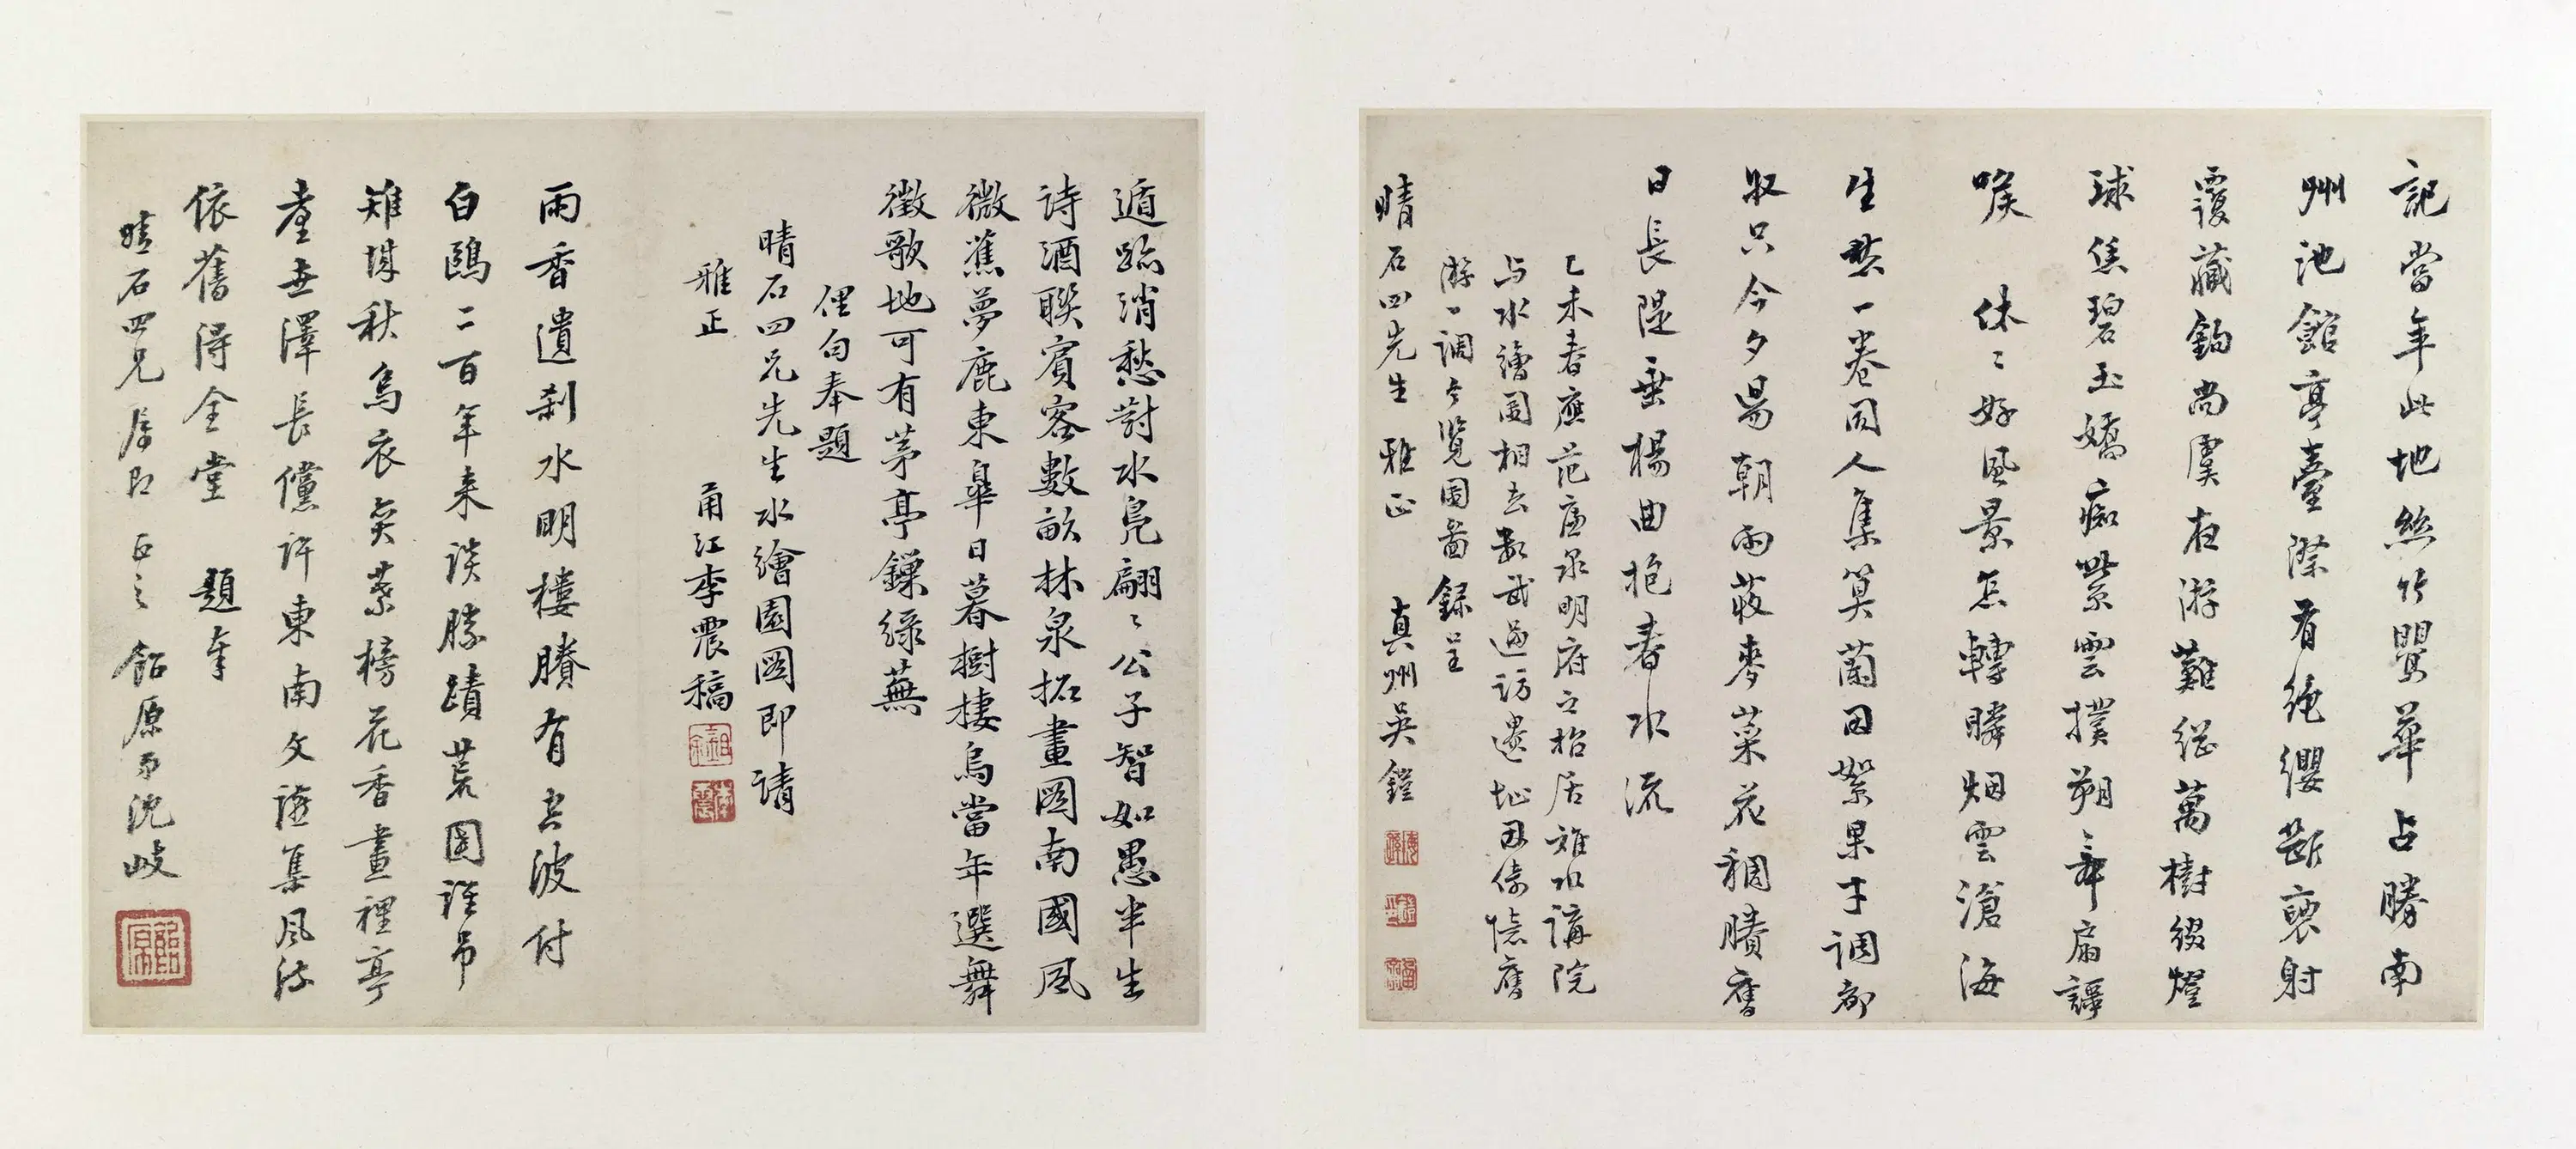 記當年此地絲竹罌華占勝南
州池館亭臺際看絶纓斷褎射
覆藏鉤尚虞在游難縂萬樹綴燈
球焦碧玉嬌痴紫雲撲朔舞扇謌
喉 休〻好風景怎轉瞬烟雲滄海
生愁一卷同人集算蘭因絮果才調都
收只今夕易朝雨菽麥菜花稠賸舊
日長隄垂楊曲抱春水流
己未春應范廉泉明府之招居雉水講院
与水繪園相去數武過訪遺址因倚憶舊
游一調今覽園圖錄呈
晴石四先生 雅正 真州吳鎧
遁跡消愁對水鳧翩〻公子智如愚半生
詩酒聯賓客數畝林泉拓畫圖南國風
微蕉夢鹿東皋日暮樹棲烏當年選舞
徵歌地可有茅亭鏁綠蕪
俚句奉題
晴石四兄先生水繪園圖即請
雅正 甬江李震稿
雨香遺刹水明樓賸有空波付
白鷗二百年来談勝蹟荒園誰弔
雉城秋烏衣奕葉榜花香畫裡亭
臺世澤長儻許東南文讌集風流
依舊得全堂 題奉
晴石四兄屬即正之 飴原弟沈岐